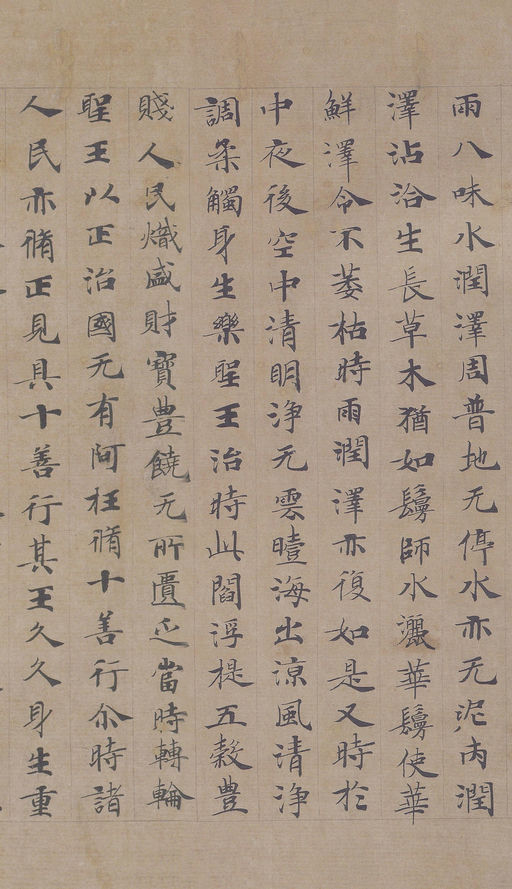 雨八味水潤澤周普地无停水亦无泥洿潤
澤沾洽生長草木猶如鬘師水灑華鬘使華
鮮澤令不萎枯時雨潤澤亦復如是又時於
中夜後空中清明淨无雲曀海出涼風清淨
調柔觸身生樂聖王治時此閻浮提五穀豊
賤人民熾盛財寶豊饒无所匱乏當時轉輪
聖王以正治國无有阿枉脩十善行尒時諸
人民亦脩正見具十善行其王久久身生重